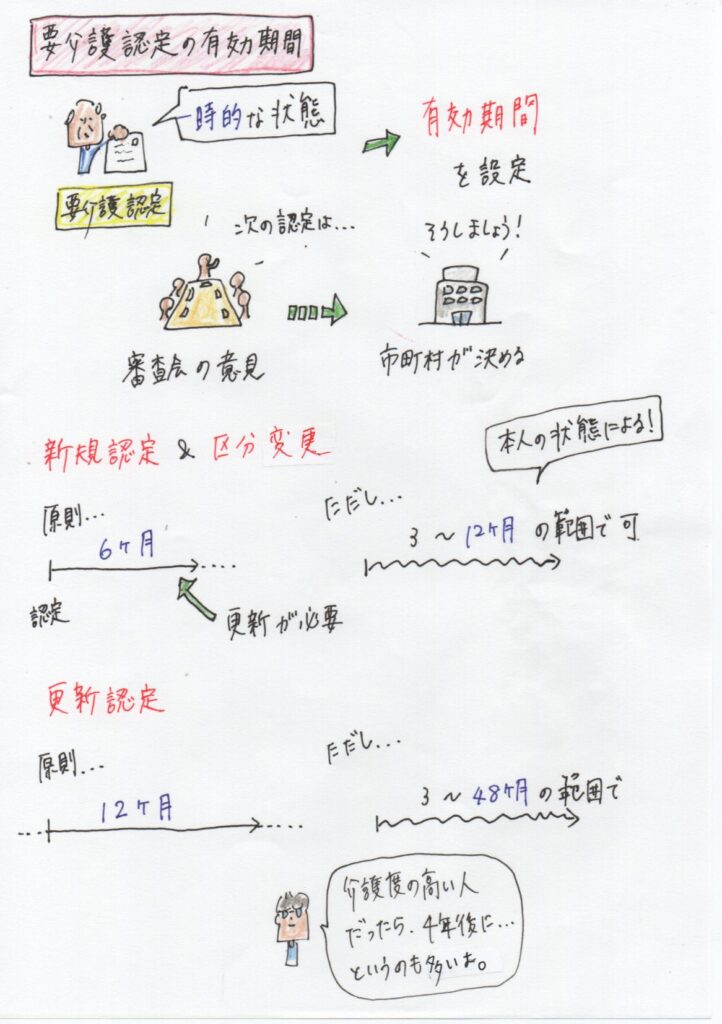 要介護認定の有効期間
一時的な状態
有効期間
を設定
要介護認定
次の認定は...
そうしましょう!
審査会の意見
市町村が決める
新規認定 & 区分変更
本人の状態による!
原則...
6ヶ月
ただし...
3 〜 12ヶ月 の範囲で可
認定
更新が必要
更新認定
原則...
12ヶ月
ただし...
3 〜 48ヶ月 の範囲で
介護度の高い人
だったら、4年後に...
というのも多いよ。